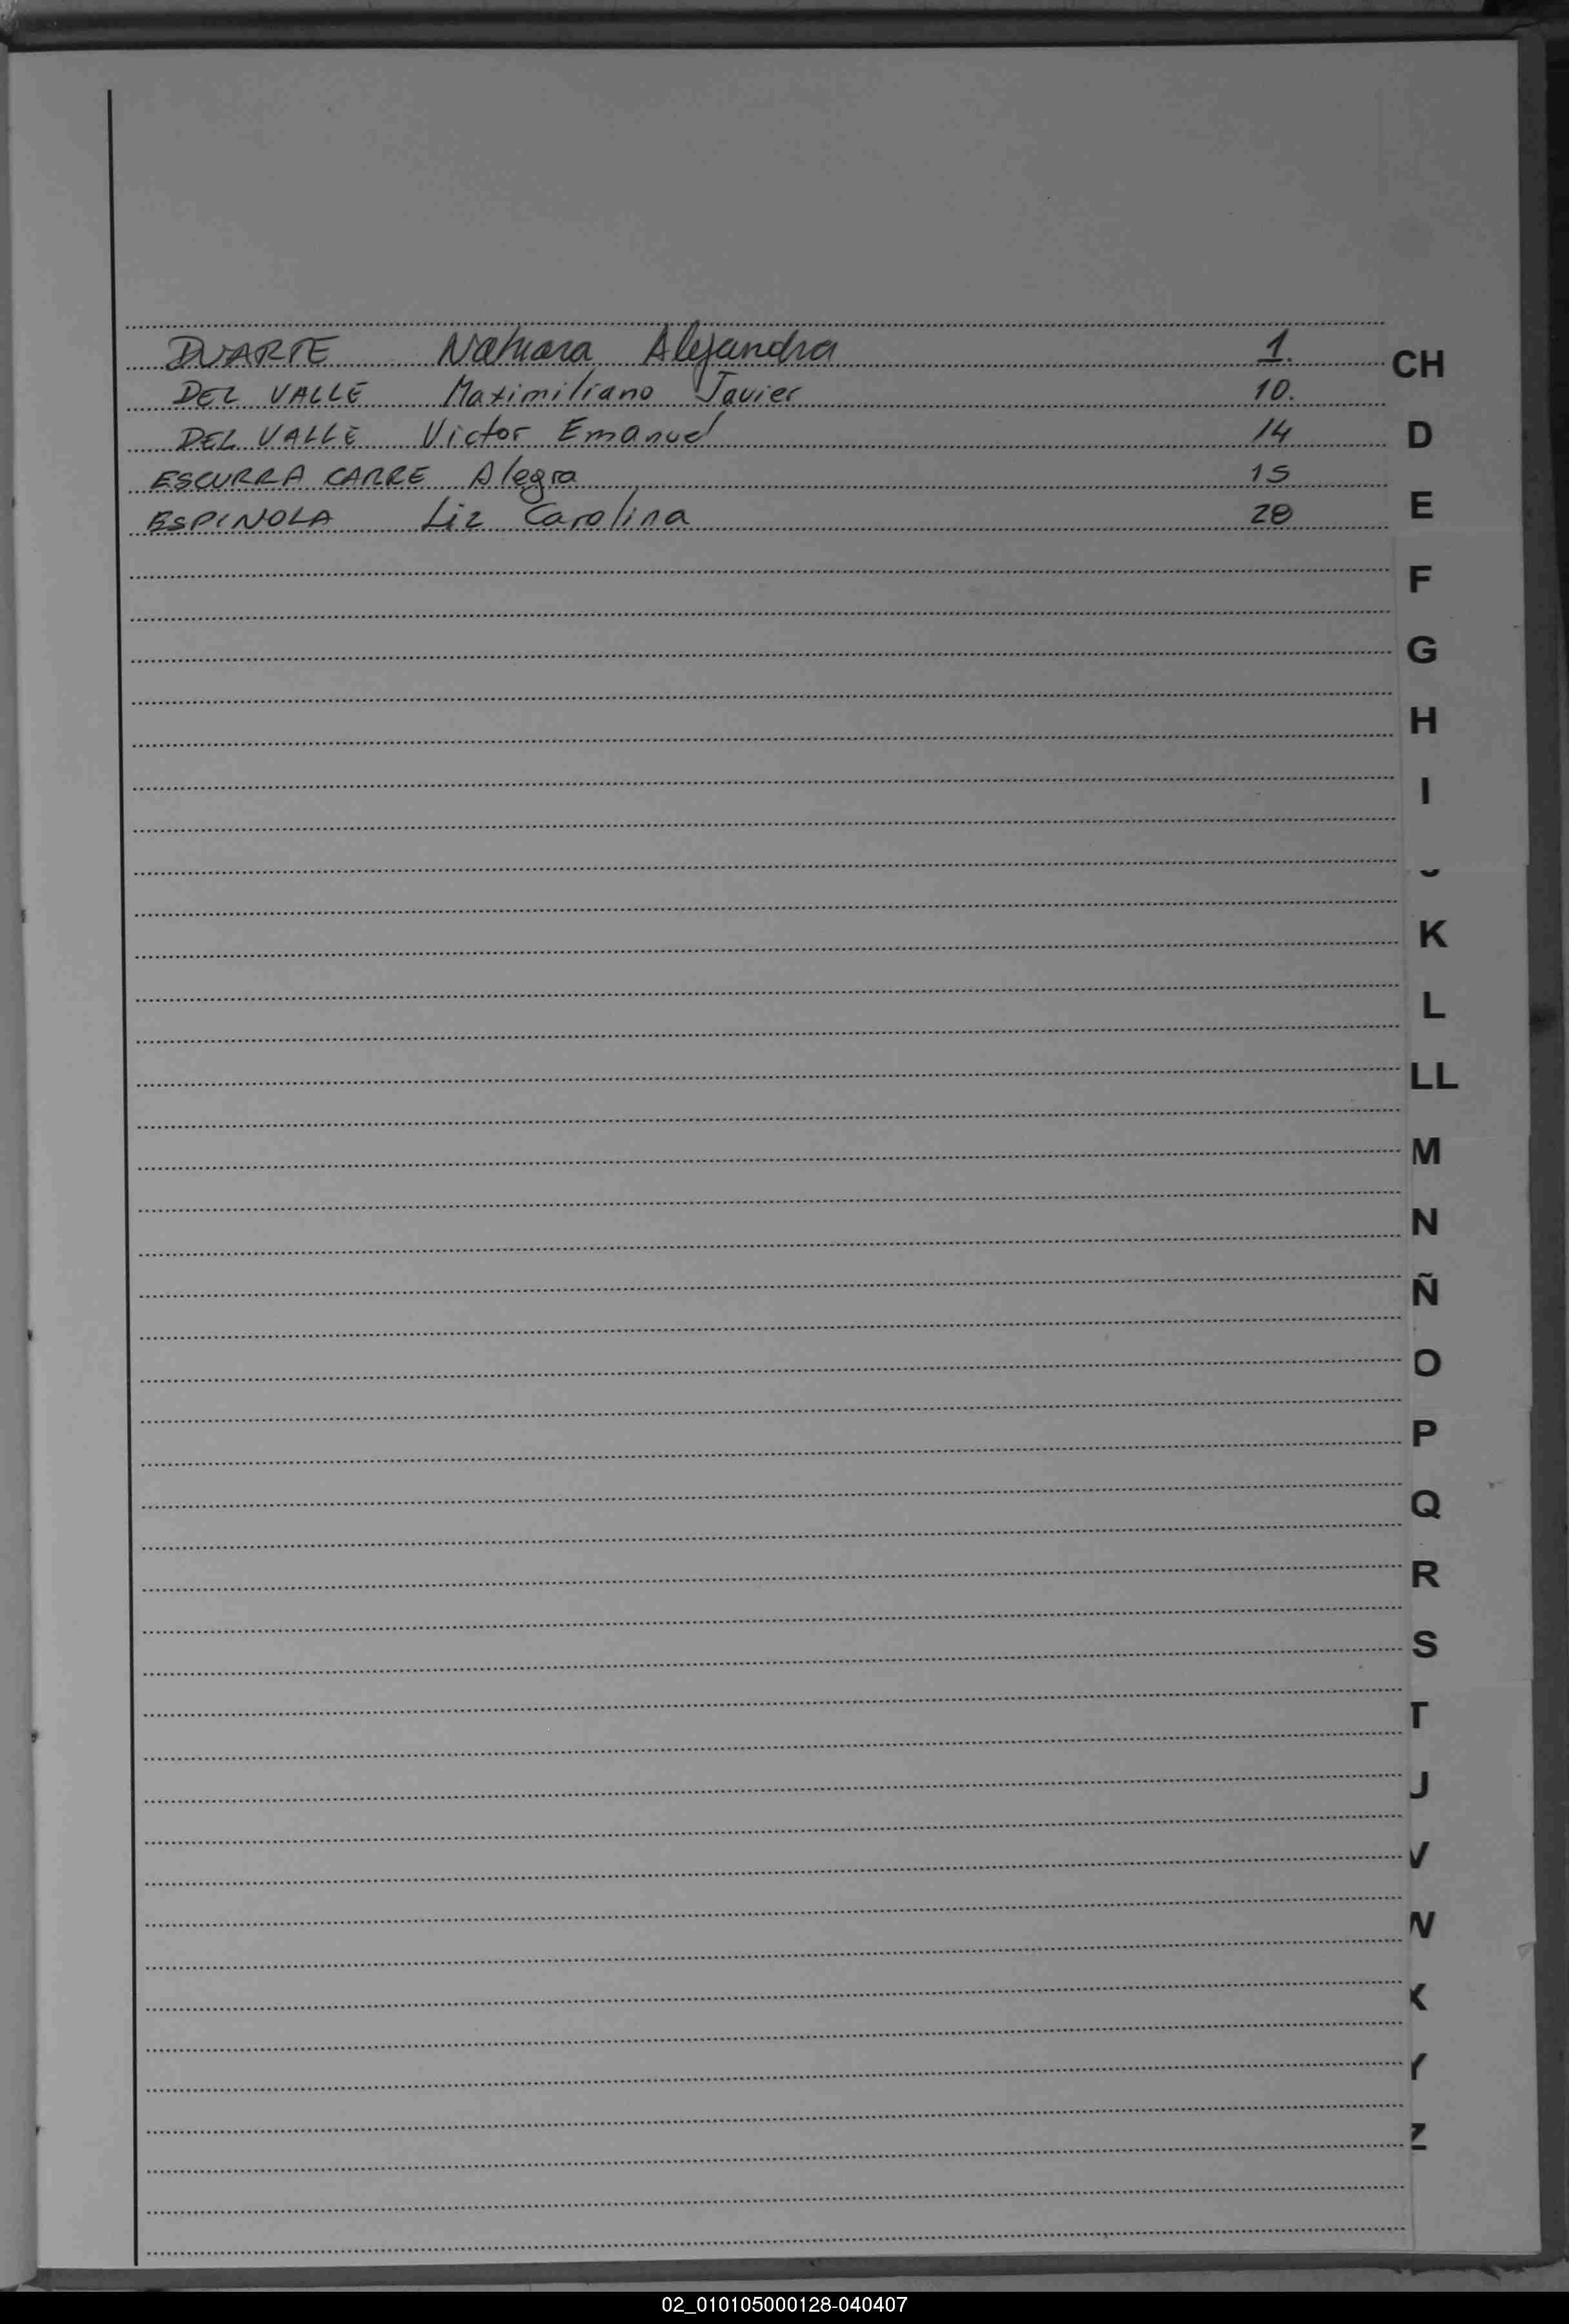 DUARTE Nahiara Alejandra 1.
DEL VALLE Maximiliano Javier 10.
DEL VALLE Victor Emanuel 14
ESCURRA CARRE Alegra 15
ESPINOLA Liz Carolina 28
CH
D
E
F
G
H
I
K
L
LL
M
N
Ñ
O
P
Q
R
S
T
U
V
W
X
Y
Z
02_010105000128-040407